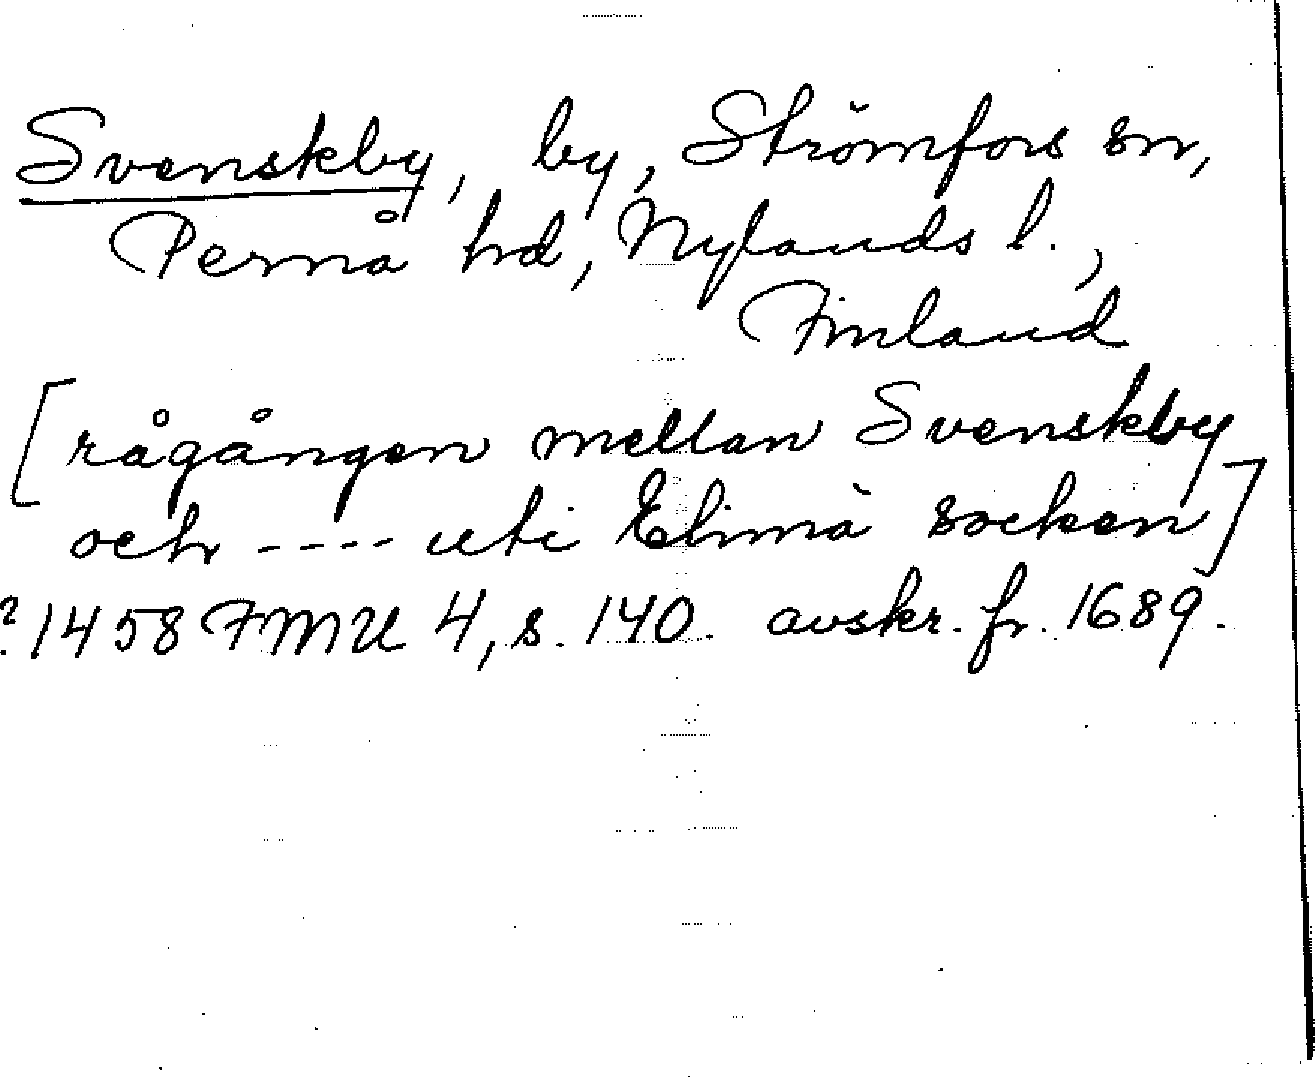 Svenskby, by, Strömfors sn,
Pernå hd, Nylands l.,
Finland
[rågången mellan Svenskby
och ---- uti Elimä socken]
? 1458 FMU 4, s. 140. avskr. fr. 1689.